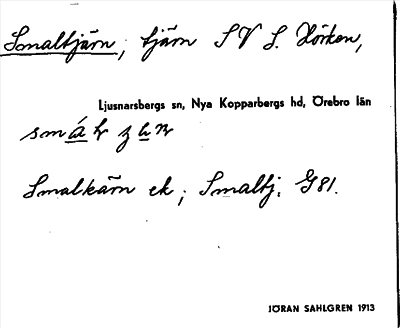 Smaltjärn, tjärn SV S. Hörken,
Ljusnarsbergs sn, Nya Kopparbergs hd, Örebro län
Smalkärn ek; Smaltj. G81.
JÖRAN SAHLGREN 1913